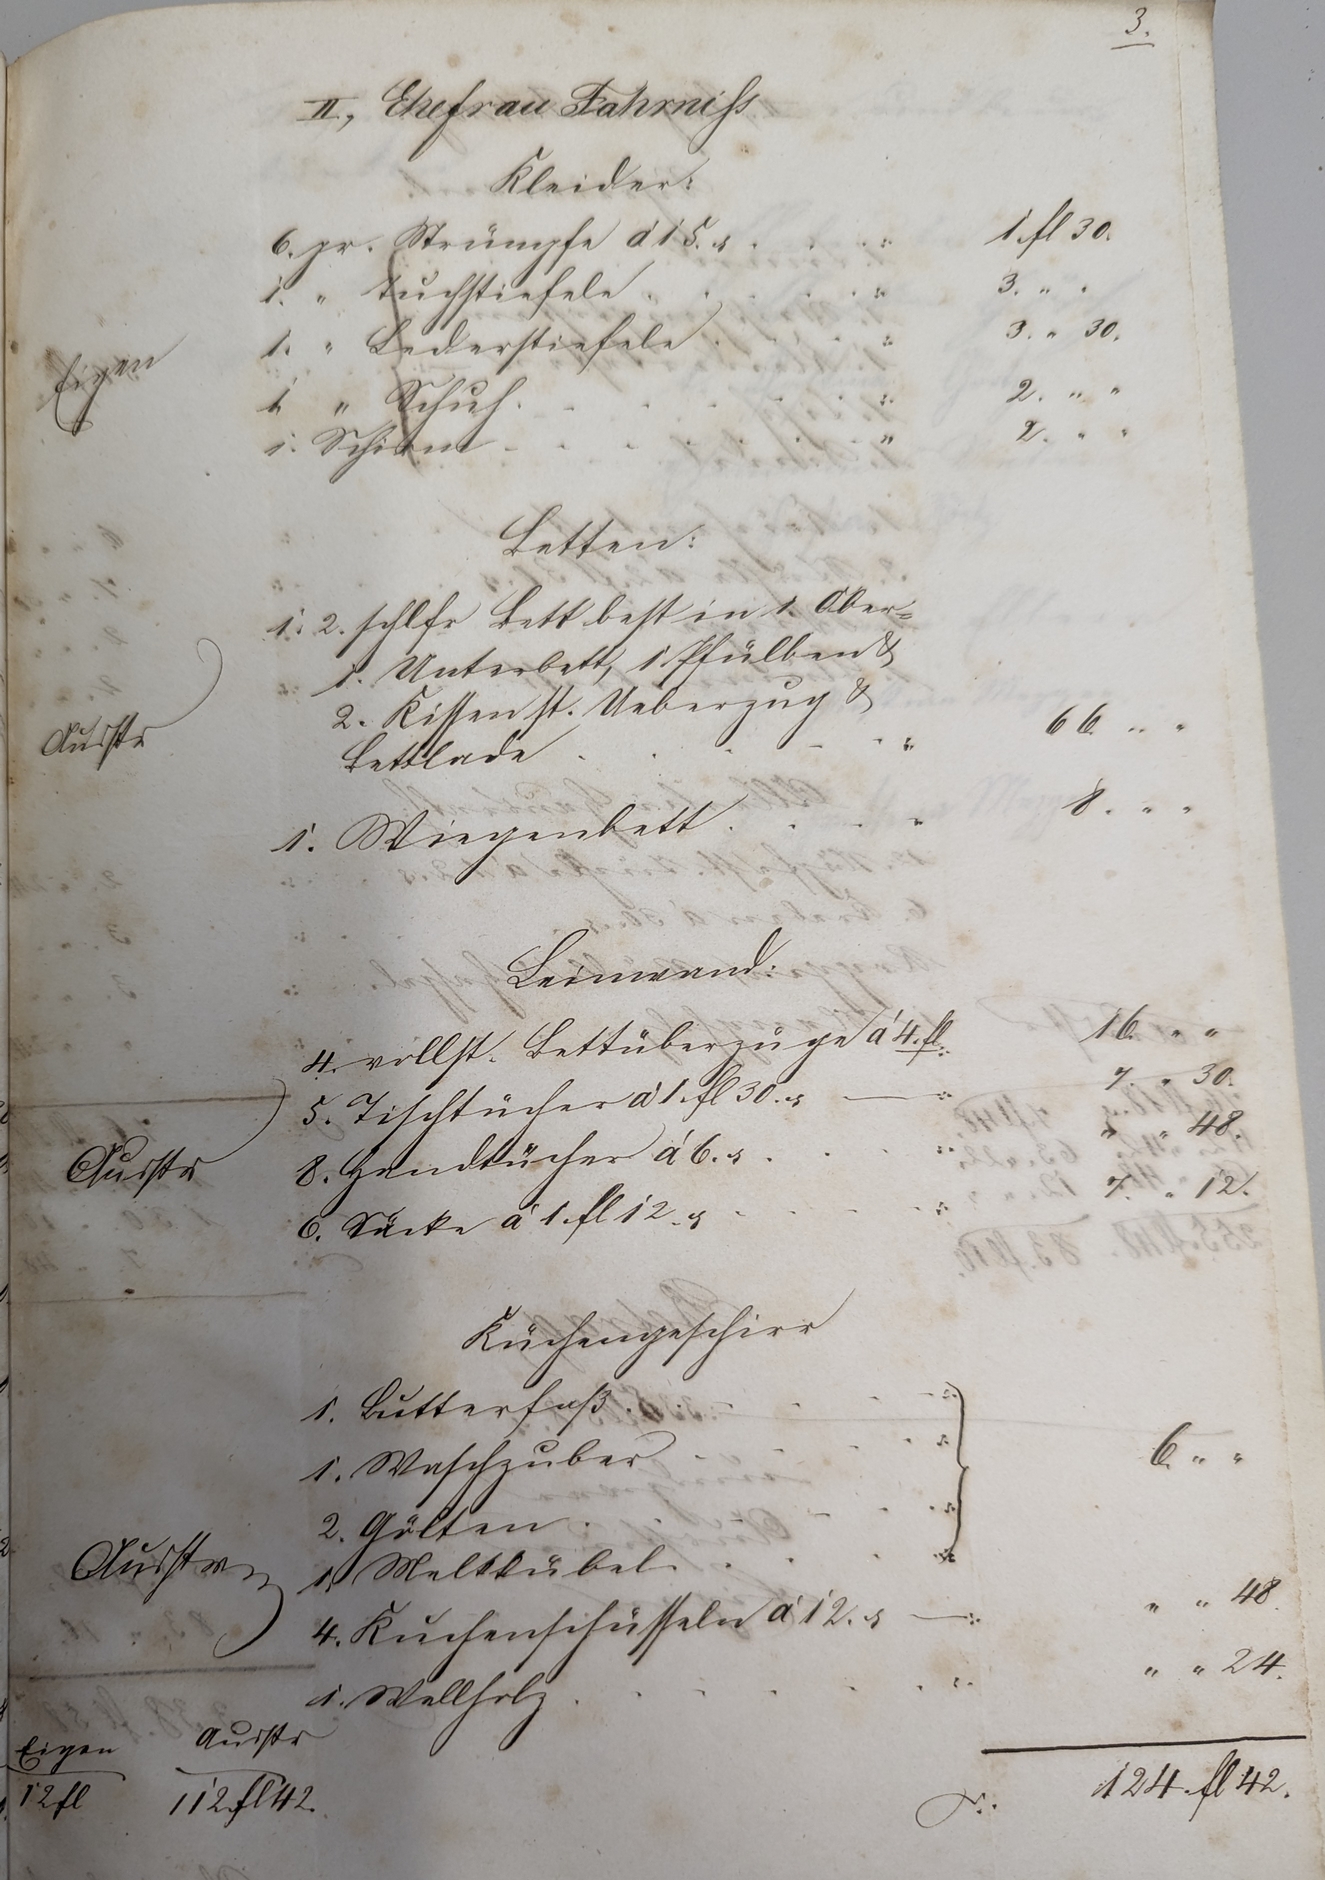 3.
II, Ehefrau Fahrniss
Kleider:
6. pr. Strümpfe á 15. x . . . " 1. fl 30.
1. " Tuchstiefele . . . . " 3. " "
1. " Lederstiefele . . . " 3. " 30.
Eigen
1. " Schuh . . . . . " 2. " "
1. Schirm . . . . . " 2. " "
Betten:
1. 2. schlfr Bett best in 1 Ober-
1. Unterbett, 1 Pfülben &
2. Kissen st. Ueberzug &
Ausstr
Bettlade . . . . . " 66. " "
1. Wiegenbett . . . . " 8. " "
Leinwand:
4. vollst. Bettüberzüge á 4. fl. 16. " "
5. Tischtücher á 1. fl 30. x — " 7. " 30.
Ausstr
8. Handtücher á 6. x . . . " " " 48.
6. Säcke á 1. fl 12. x . . . " 7. " 12.
Küchengeschirr
1. Butterfaß . . . . . "
1. Waschzuber . . . . " 6. " "
2. Gölten . . . . . "
Ausstr
1. Melkkübel . . . . "
4. Kuchenschüsseln á 12. x — " " " 48.
1. Wellholz . . . . . " " " 24.
Eigen Ausstr
12 fl 112. fl 42. 124. fl 42.